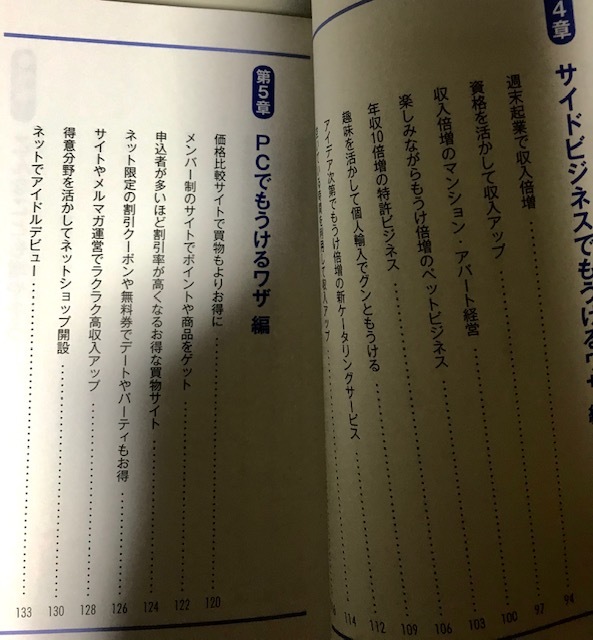 4章
サイドビジネスでもうけるワザ
週末起業で収入倍増 94
資格を活かして収入アップ 97
収入倍増のマンション・アパート経営 100
楽しみながらもうけ倍増のペットビジネス 103
年収10倍増の特許ビジネス 106
趣味を活かして個人輸入でグンともうける 109
アイデア次第でもうけ倍増の新ケータリングサービス 112
して収入アップ 114
第5章
PCでもうけるワザ 編
価格比較サイトで買物もよりお得に 120
メンバー制のサイトでポイントや商品をゲット 122
申込者が多いほど割引率が高くなるお得な買物サイト 124
ネット限定の割引クーポンや無料券でデートやパーティもお得 126
サイトやメルマガ運営でラクラク高収入アップ 128
得意分野を活かしてネットショップ開設 130
ネットでアイドルデビュー 133